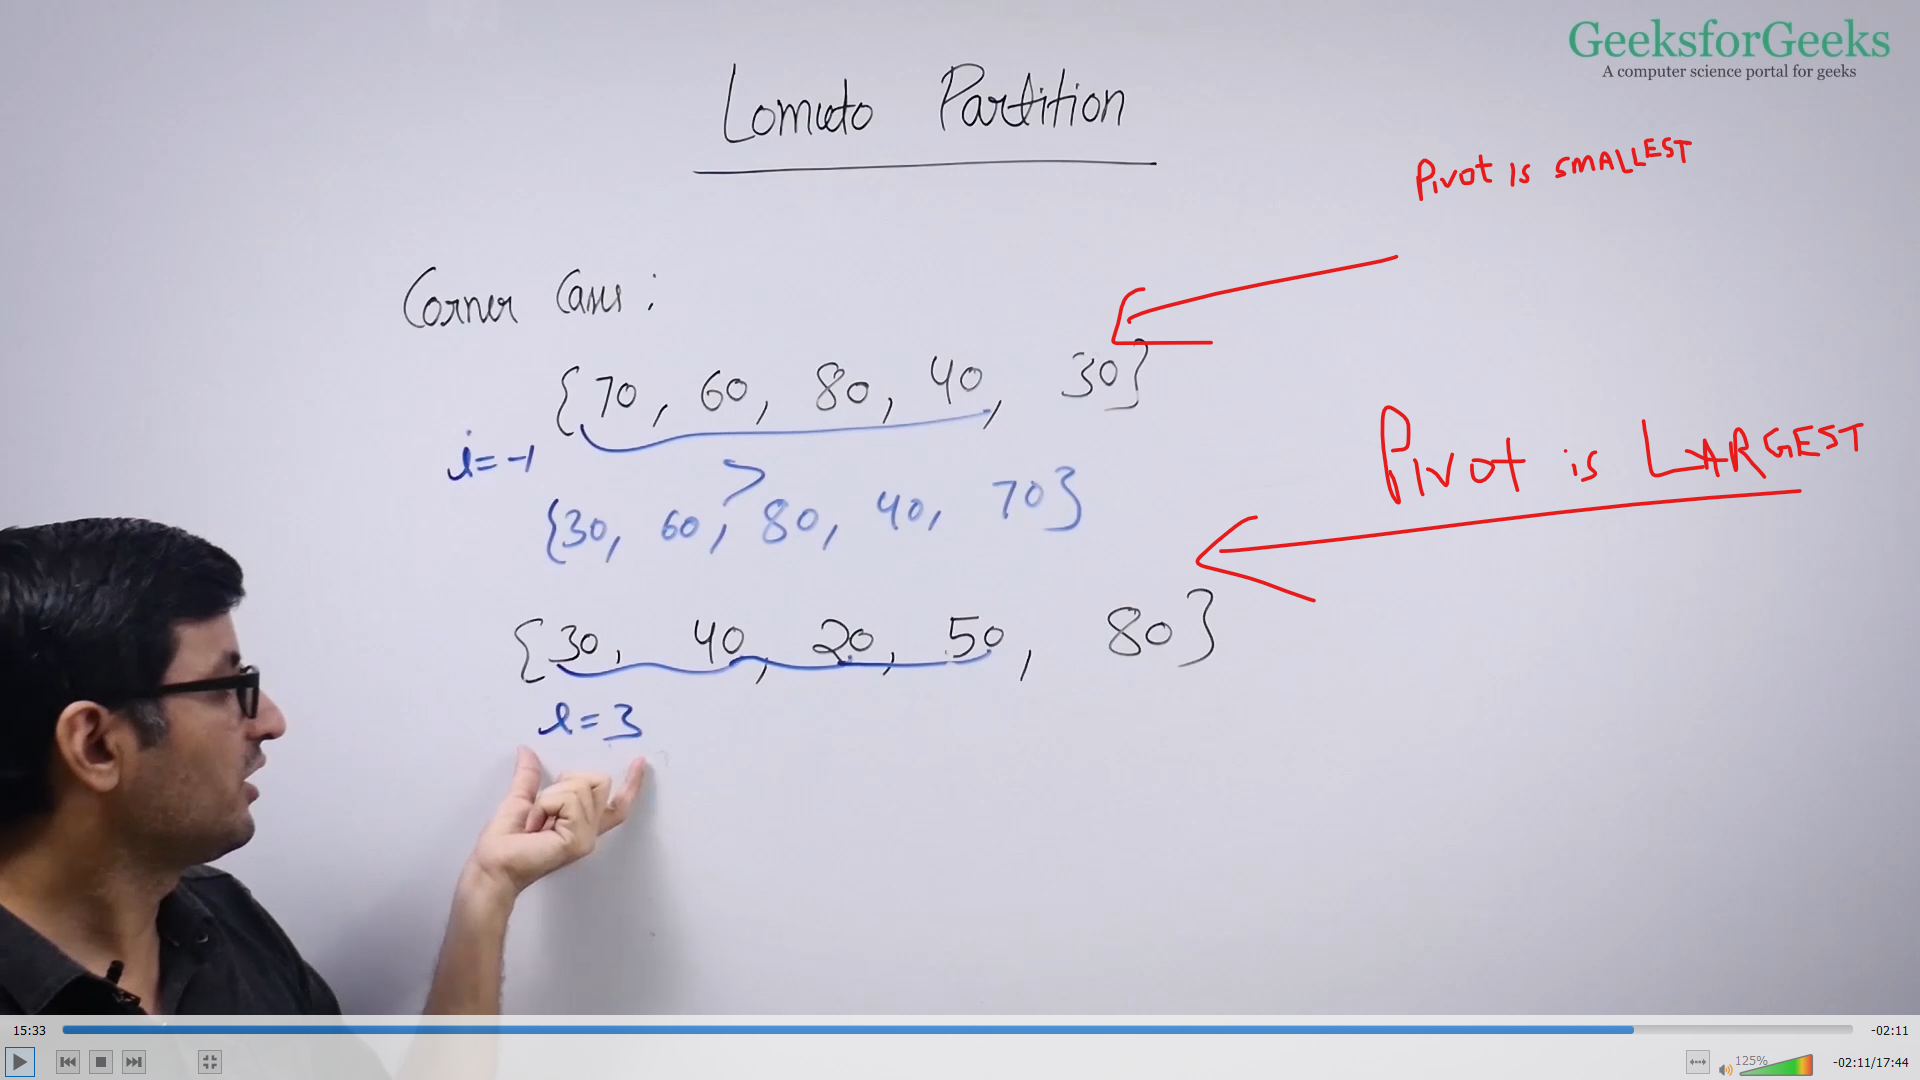 GeeksforGeeks
A computer science portal for geeks
Lomuto Partition
Pivot is SMALLEST
Corner Cases :
{70, 60, 80, 40, 30}
i=-1
>
Pivot is LARGEST
{30, 60, 80, 40, 70}
{30, 40, 20, 50, 80}
i=3
15:33
-02:11
125%
-02:11/17:44